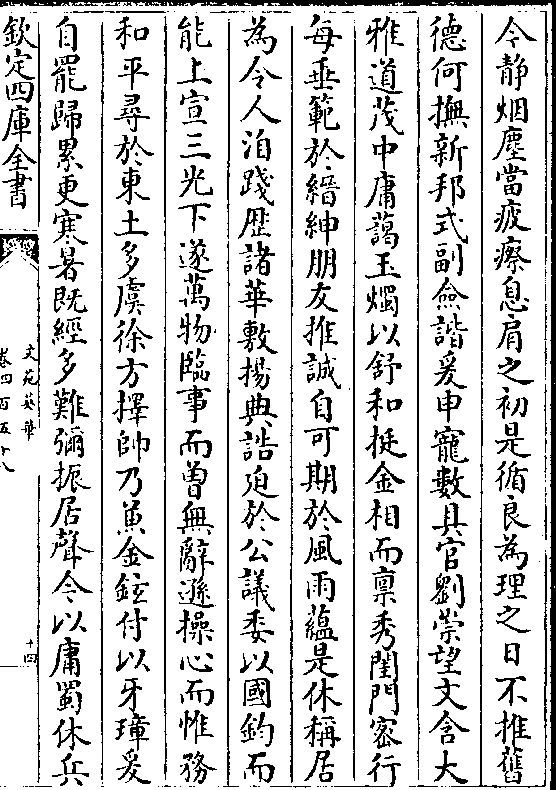 今静烟塵當疲瘵息肩之初是循良為理之日不推舊
德何撫新邦式副僉諧爰申寵數具官劉崇望文含大
雅道茂中庸藹玉燭以舒和挺金相而禀秀閨門密行
每垂範於縉紳朋友推誠自可期於風雨蘊是休稱居
為令人洎踐歴諸華敷揚典誥迨於公議委以國鈞而
能上宣三光下遂萬物臨事而曽無辭遜操心而惟務
和平尋於東土多虞徐方擇帥乃兼金鉉付以牙璋爰
自罷歸累更寒暑既經多難彌振居聲今以庸蜀休兵
欽定四庫全書
文苑英華
卷四百五十八
十四